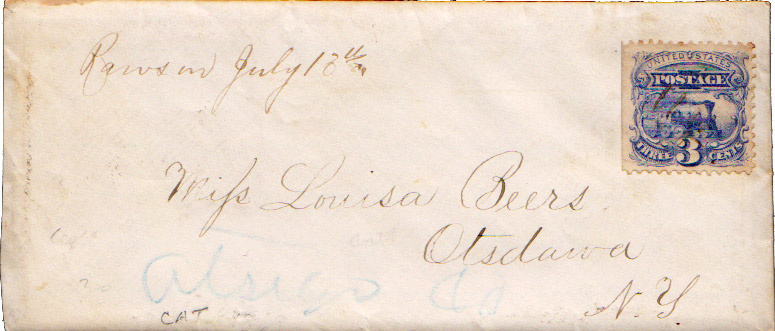 Rawson July 18th
UNITED STATES
POSTAGE
THREE 3 CENTS
Miss Louisa Beers
Otsdawa
N.Y.
Otsego Co
CAT